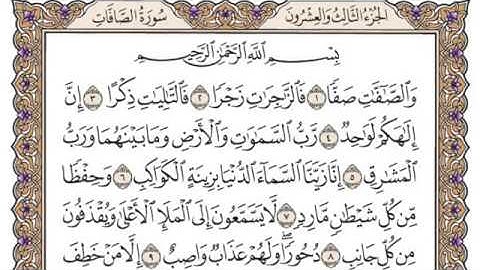 الجزء الثالث والعشرون سورة الصافات
بِسْمِ ٱللَّهِ ٱلرَّحْمَٰنِ ٱلرَّحِيمِ
وَٱلصَّٰٓفَّٰتِ صَفًّا ١ فَٱلزَّٰجِرَٰتِ زَجْرًا ٢ فَٱلتَّٰلِيَٰتِ ذِكْرًا ٣ إِنَّ
إِلَٰهَكُمْ لَوَٰحِدٌ ٤ رَّبُّ ٱلسَّمَٰوَٰتِ وَٱلْأَرْضِ وَمَا بَيْنَهُمَا وَرَبُّ
ٱلْمَشَٰرِقِ ٥ إِنَّا زَيَّنَّا ٱلسَّمَآءَ ٱلدُّنْيَا بِزِينَةٍ ٱلْكَوَاكِبِ ٦ وَحِفْظًا
مِّن كُلِّ شَيْطَٰنٍ مَّارِدٍ ٧ لَّا يَسَّمَّعُونَ إِلَى ٱلْمَلَإِ ٱلْأَعْلَىٰ وَيُقْذَفُونَ
مِن كُلِّ جَانِبٍ ٨ دُحُورًا ۖ وَلَهُمْ عَذَابٌ وَاصِبٌ ٩ إِلَّا مَنْ خَطِفَ